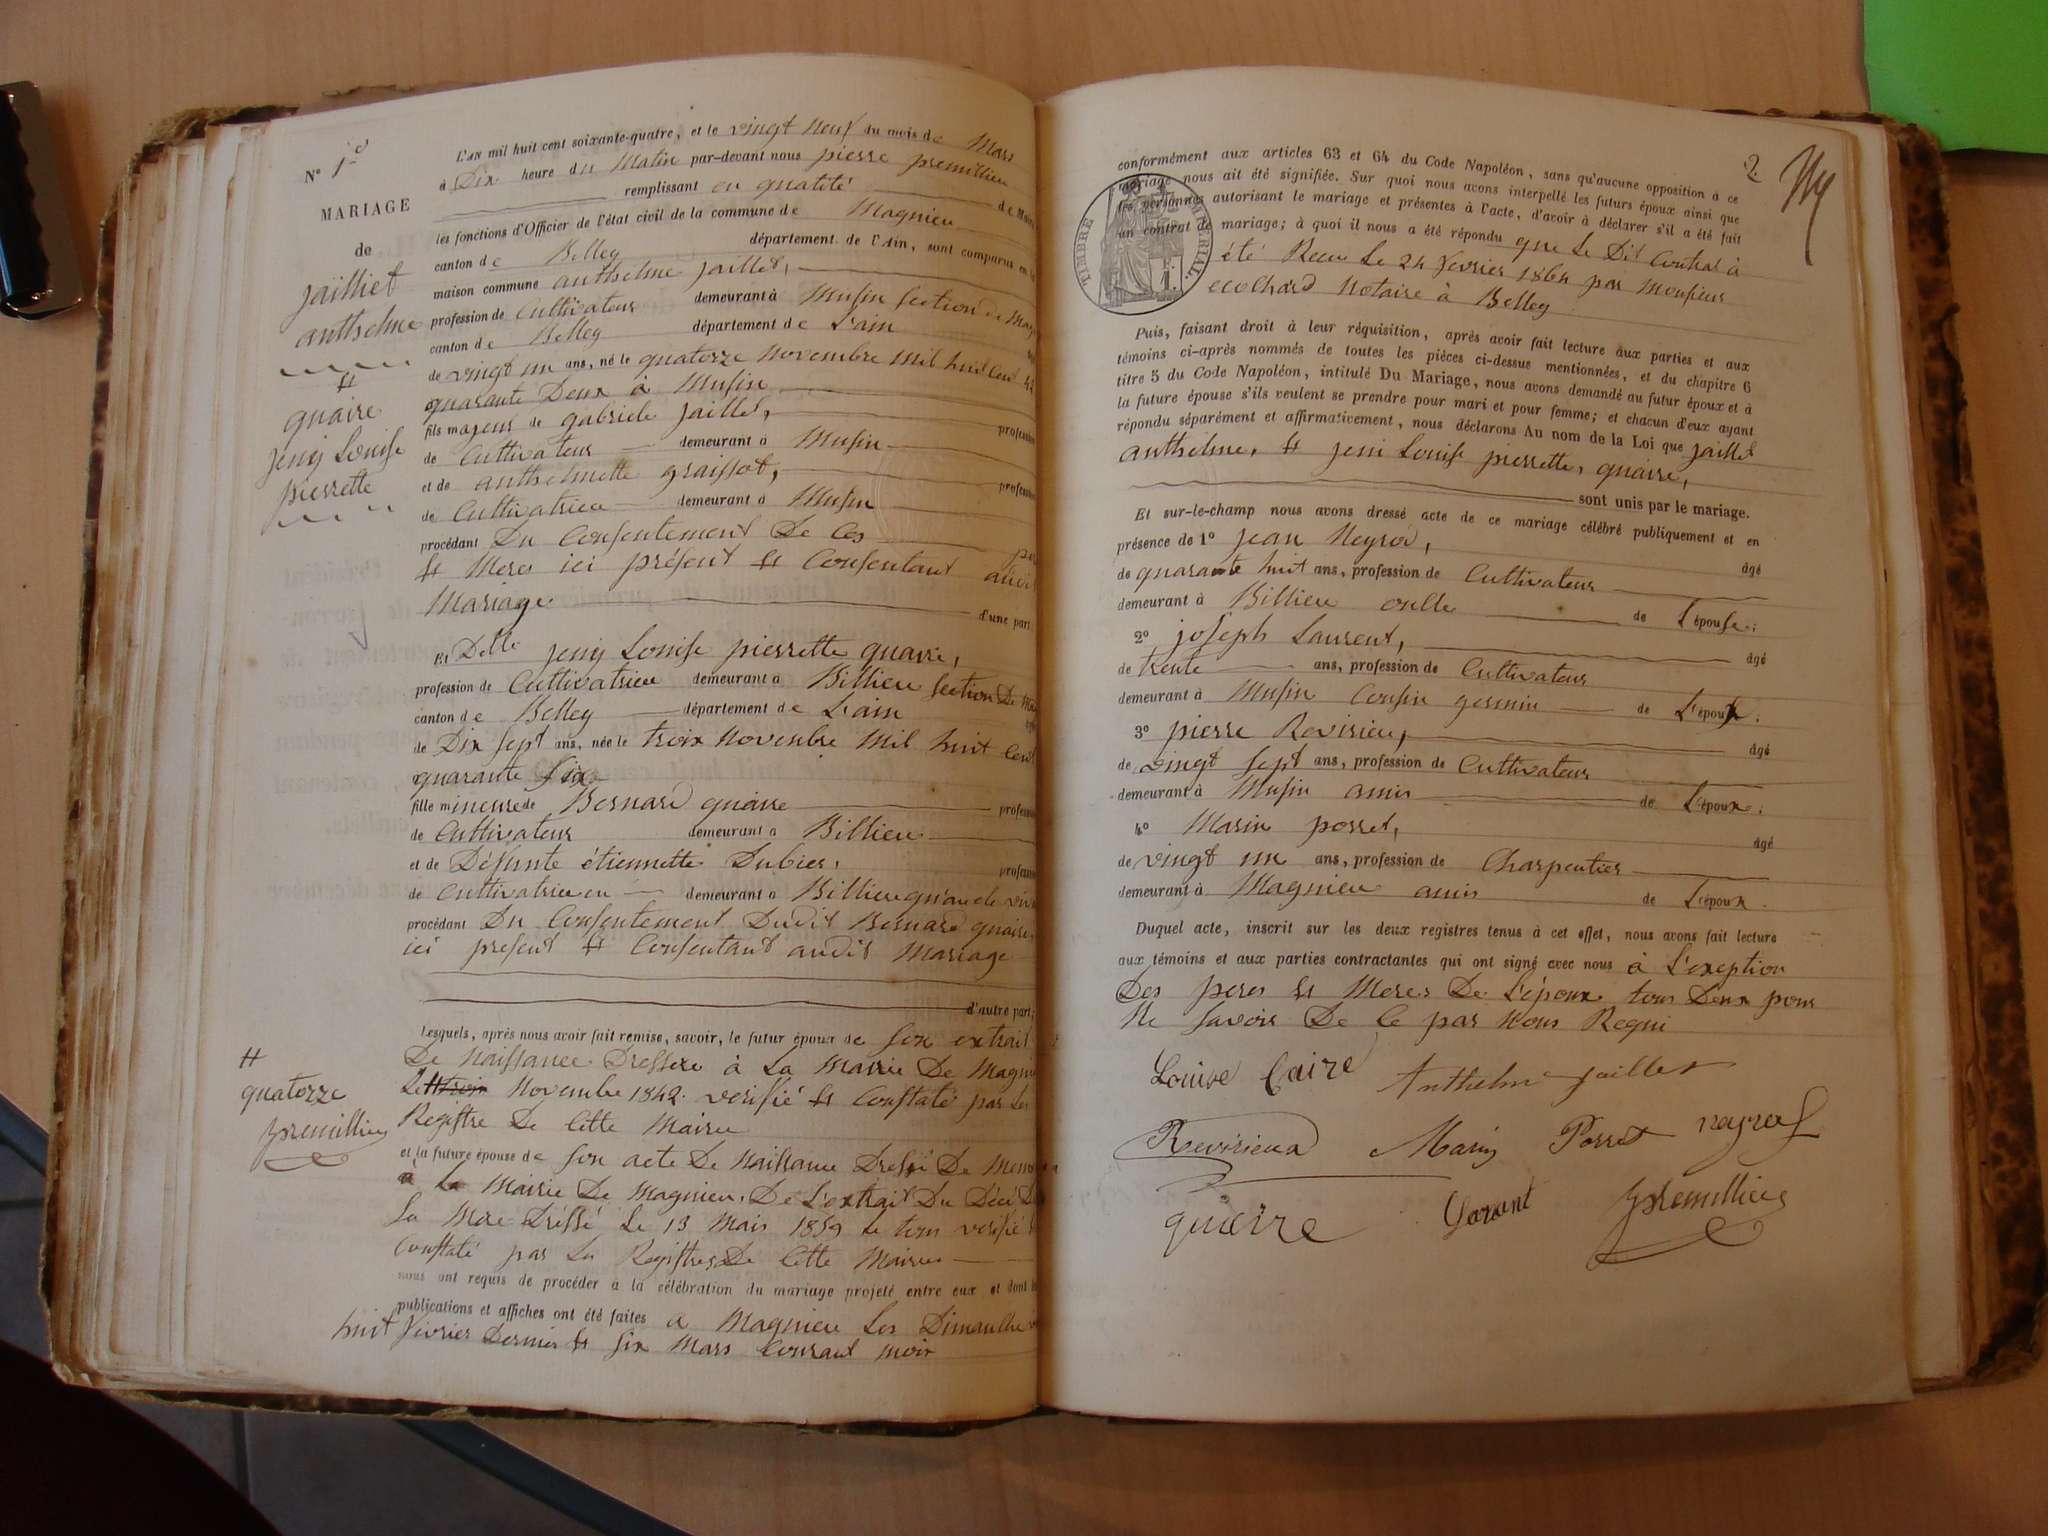 N° 1er
MARIAGE
de
jailliet
anthelme
et
quaire
jeny Louise
pierrette
L'AN mil huit cent soixante-quatre, et le vingt neuf du mois de Mars
à Dix heure du Matin par-devant nous pierre premillieu
remplissant en qualité de Maire
les fonctions d'Officier de l'état civil de la commune de Magnieu
canton de Belley département de l'Ain, sont comparus en la
maison commune anthelme jaillet,
profession de Cultivateur demeurant à Musin Section de
canton de Belley département de L'ain
de vingt un ans, né le quatorze Novembre Mil huit Cent
quarante Deux à Musin
fils majeur de gabriele jaillet, profession
de Cultivateur demeurant à Musin
et de anthelmette graissot, profession
de Cultivatrice demeurant à Musin
procédant Du Consentement De Ces
et Meres ici présent et Consentant
Mariage d'une part.
Et Delle jeny Louise pierrette quaire,
profession de Cultivatrice demeurant à Billieu Section De
canton de Belley département de L'ain
de Dix sept ans, née le troix Novembre Mil huit Cent
quarante Six
fille mineure de Bernard quaire profession
de Cultivateur demeurant à Billieu
et de Défunte étiennette Dubier, profession
de Cultivatrice en demeurant à Billieu
procédant Du Consentement Dudit Bernard quaire
ici present et Consentant audit Mariage
d'autre part;
Lesquels, après nous avoir fait remise, savoir, le futur époux de son extrait
De Naissance Dressere à La Mairie De
Le # troix Novembre 1842. verifié et Constaté par Les
Registre De Cette Mairie
# quatorze
premillieu
et la future épouse de son acte De Naissance Dressé De
à la Mairie De Magnieu, De L'extrait Du Décé
Sa Mere Dréssé Le 13 Mais 1859 Le tous verifié
Constaté par Les Registres De Cette Mairie
nous ont requis de procéder à la célébration du mariage projeté entre eux et dont les
publications et affiches ont été faites a Magnieu Les Dimanche
huit fevrier Dernier et Six Mars Courant moix
2.
conformément aux articles 63 et 64 du Code Napoléon, sans qu'aucune opposition à ce
mariage nous ait été signifiée. Sur quoi nous avons interpellé les futurs époux ainsi que
les personnes autorisant le mariage et présentes à l'acte, d'avoir à déclarer s'il a été fait
un contrat de mariage; à quoi il nous a été répondu que Le Dit Contrat à
été Recu Le 24 fevrier 1864 par Monsieur
ecochard Notaire à Belley
TIMBRE IMPERIAL.
Puis, faisant droit à leur réquisition, après avoir fait lecture aux parties et aux
témoins ci-après nommés de toutes les pièces ci-dessus mentionnées, et du chapitre 6
titre 5 du Code Napoléon, intitulé Du Mariage, nous avons demandé au futur époux et à
la future épouse s'ils veulent se prendre pour mari et pour femme; et chacun d'eux ayant
répondu séparément et affirmativement, nous déclarons Au nom de la Loi que jaillet
anthelme, et jeni Louise pierrette, quaire,
sont unis par le mariage.
Et sur-le-champ nous avons dressé acte de ce mariage célébré publiquement et en
présence de 1° jean Neyrod, âgé
de quarante huit ans, profession de Cultivateur
demeurant à Billieu de L'épouse.
2° joseph Laurent, âgé
de trente ans, profession de Cultivateur
demeurant à Musin Cousin germin de L'époux.
3° pierre Revirieu, âgé
de vingt sept ans, profession de Cultivateur
demeurant à Musin amis de L'époux.
4° Marin porret, âgé
de vingt un ans, profession de Charpentier
demeurant à Magnieu amis de L'époux.
Duquel acte, inscrit sur les deux registres tenus à cet effet, nous avons fait lecture
aux témoins et aux parties contractantes qui ont signé avec nous à L'exeption
Des peres et Meres De L'époux tous Deux pour
Ne Savoir De Ce par Nous Requi
Louise Caire Anthelme jaillet
Revirieux Marin Porret neyrod
quaire Lorant premillieu